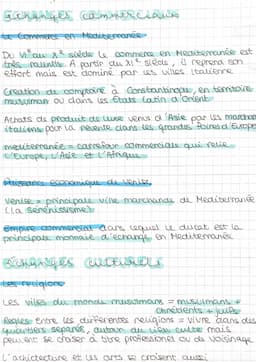 échanges commerciaux
Le Commerce en Mediterranée
Du VIe au Xe siècle le commerce en Mediterranée est
très ralentit. A partir du XIe siècle, il reprend son
effort mais est dominé par les villes italienne
Création de comptoire à Constantinople, en territoire
musulman ou dans les Etats latin d'Orient
Achats de produit de luxe venus d'Asie par les marchands
italiens pour la revente dans les grandes foires d'Europe
mediterranée = carrefour commerciaux qui relie
L'Europe, L'Asie et L'Afrique
Puissance économique de Venise
Venise = principale ville marchande de Mediterrannée
(La sérénissime)
Empire commercial dans lequel le ducat est la
principale monnaie d'échange en Mediterranée
échanges culturels
Les religions
Les villes du monde musulmans = musulmans +
chrétients + juifs
Règles Entre les différentes religions = vivre dans des
quartiers séparés, autour du lieu culte mais
peuvent se croiser à titre professionel ou de voisinage
L'architecture et les arts se croisent aussi